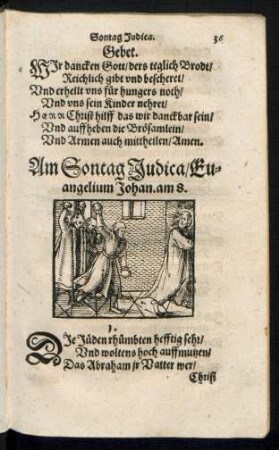 Sontag Judica. 36
Gebet.
WIr dancken Gott/ ders teglich Brodt/
Reichlich gibt vnd bescheret/
Vnd erhellt vns für hungers noth/
Vnd vns sein Kinder nehret/
HERR Christ hilff das wir danckbar sein/
Vnd auffheben die Brösamlein/
Vnd Armen auch mittheilen/ Amen.
Am Sontag Judica/ Eu-
angelium Johan. am 8.
1.
DIe Jüden rhümbten hefftig sehr/
Vnd woltens hoch auffmutzen/
Das Abraham jr Vatter wer/
Christ